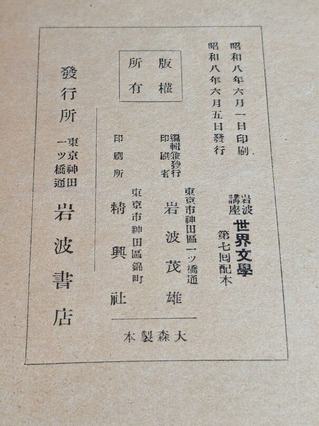 昭和八年六月一日印刷
昭和八年六月五日發行
岩波
講座
世界文學
第七囘配本
版權
所有
東京市神田區一ツ橋通
編輯兼發行
印刷者
岩波茂雄
東京市神田區錦町
印刷所
精興社
東京神田
一ツ橋通
發行所
岩波書店
大森製本